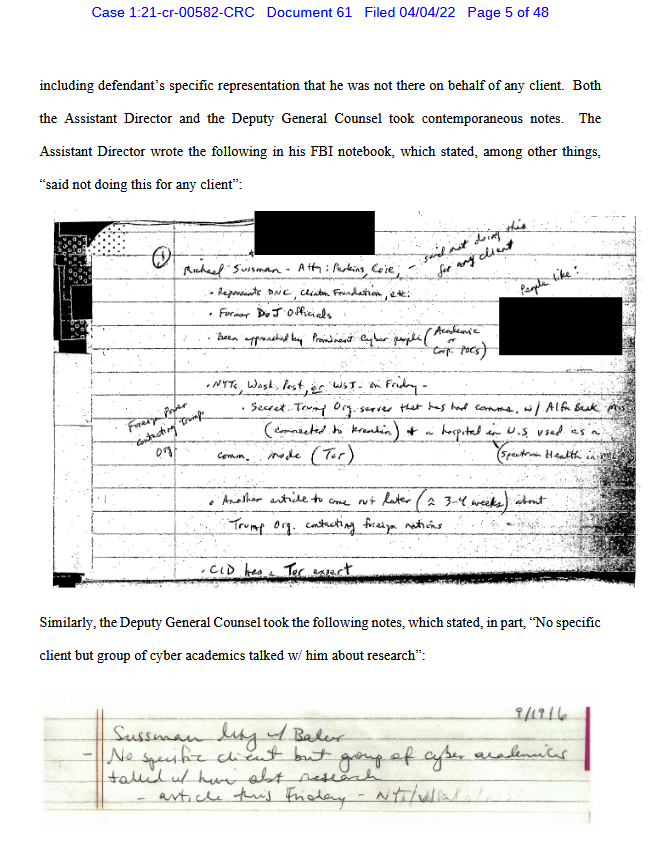 Case 1:21-cr-00582-CRC Document 61 Filed 04/04/22 Page 5 of 48
including defendant’s specific representation that he was not there on behalf of any client. Both
the Assistant Director and the Deputy General Counsel took contemporaneous notes. The
Assistant Director wrote the following in his FBI notebook, which stated, among other things,
“said not doing this for any client”:
①
Michael Sussman - Atty: Perkins Coie, - said not doing this
for any client
• Represents DNC, Clinton Foundation, etc.
People like:
• Former DoJ Officials
• Been approached by Prominent Cyber people (Academic
or
Corp. POCs)
• NYT, Wash. Post, or WSJ on Friday -
Foreign Power
contacting Trump
Org
• Secret Trump Org. server that has had comms. w/ Alfa Bank
(connected to Kremlin) & a hospital in U.S. used as a
comm. node (Tor)
(Spectrum Health in
• Another article to come out later (≈ 3-4 weeks) about
Trump Org. contacting foreign nations
• CID has a Tor expert
Similarly, the Deputy General Counsel took the following notes, which stated, in part, “No specific
client but group of cyber academics talked w/ him about research”:
9/19/16
Sussman mtg w/ Baker
- No specific client but group of cyber academics
talked w/ him abt research
- article this Friday - NYT/